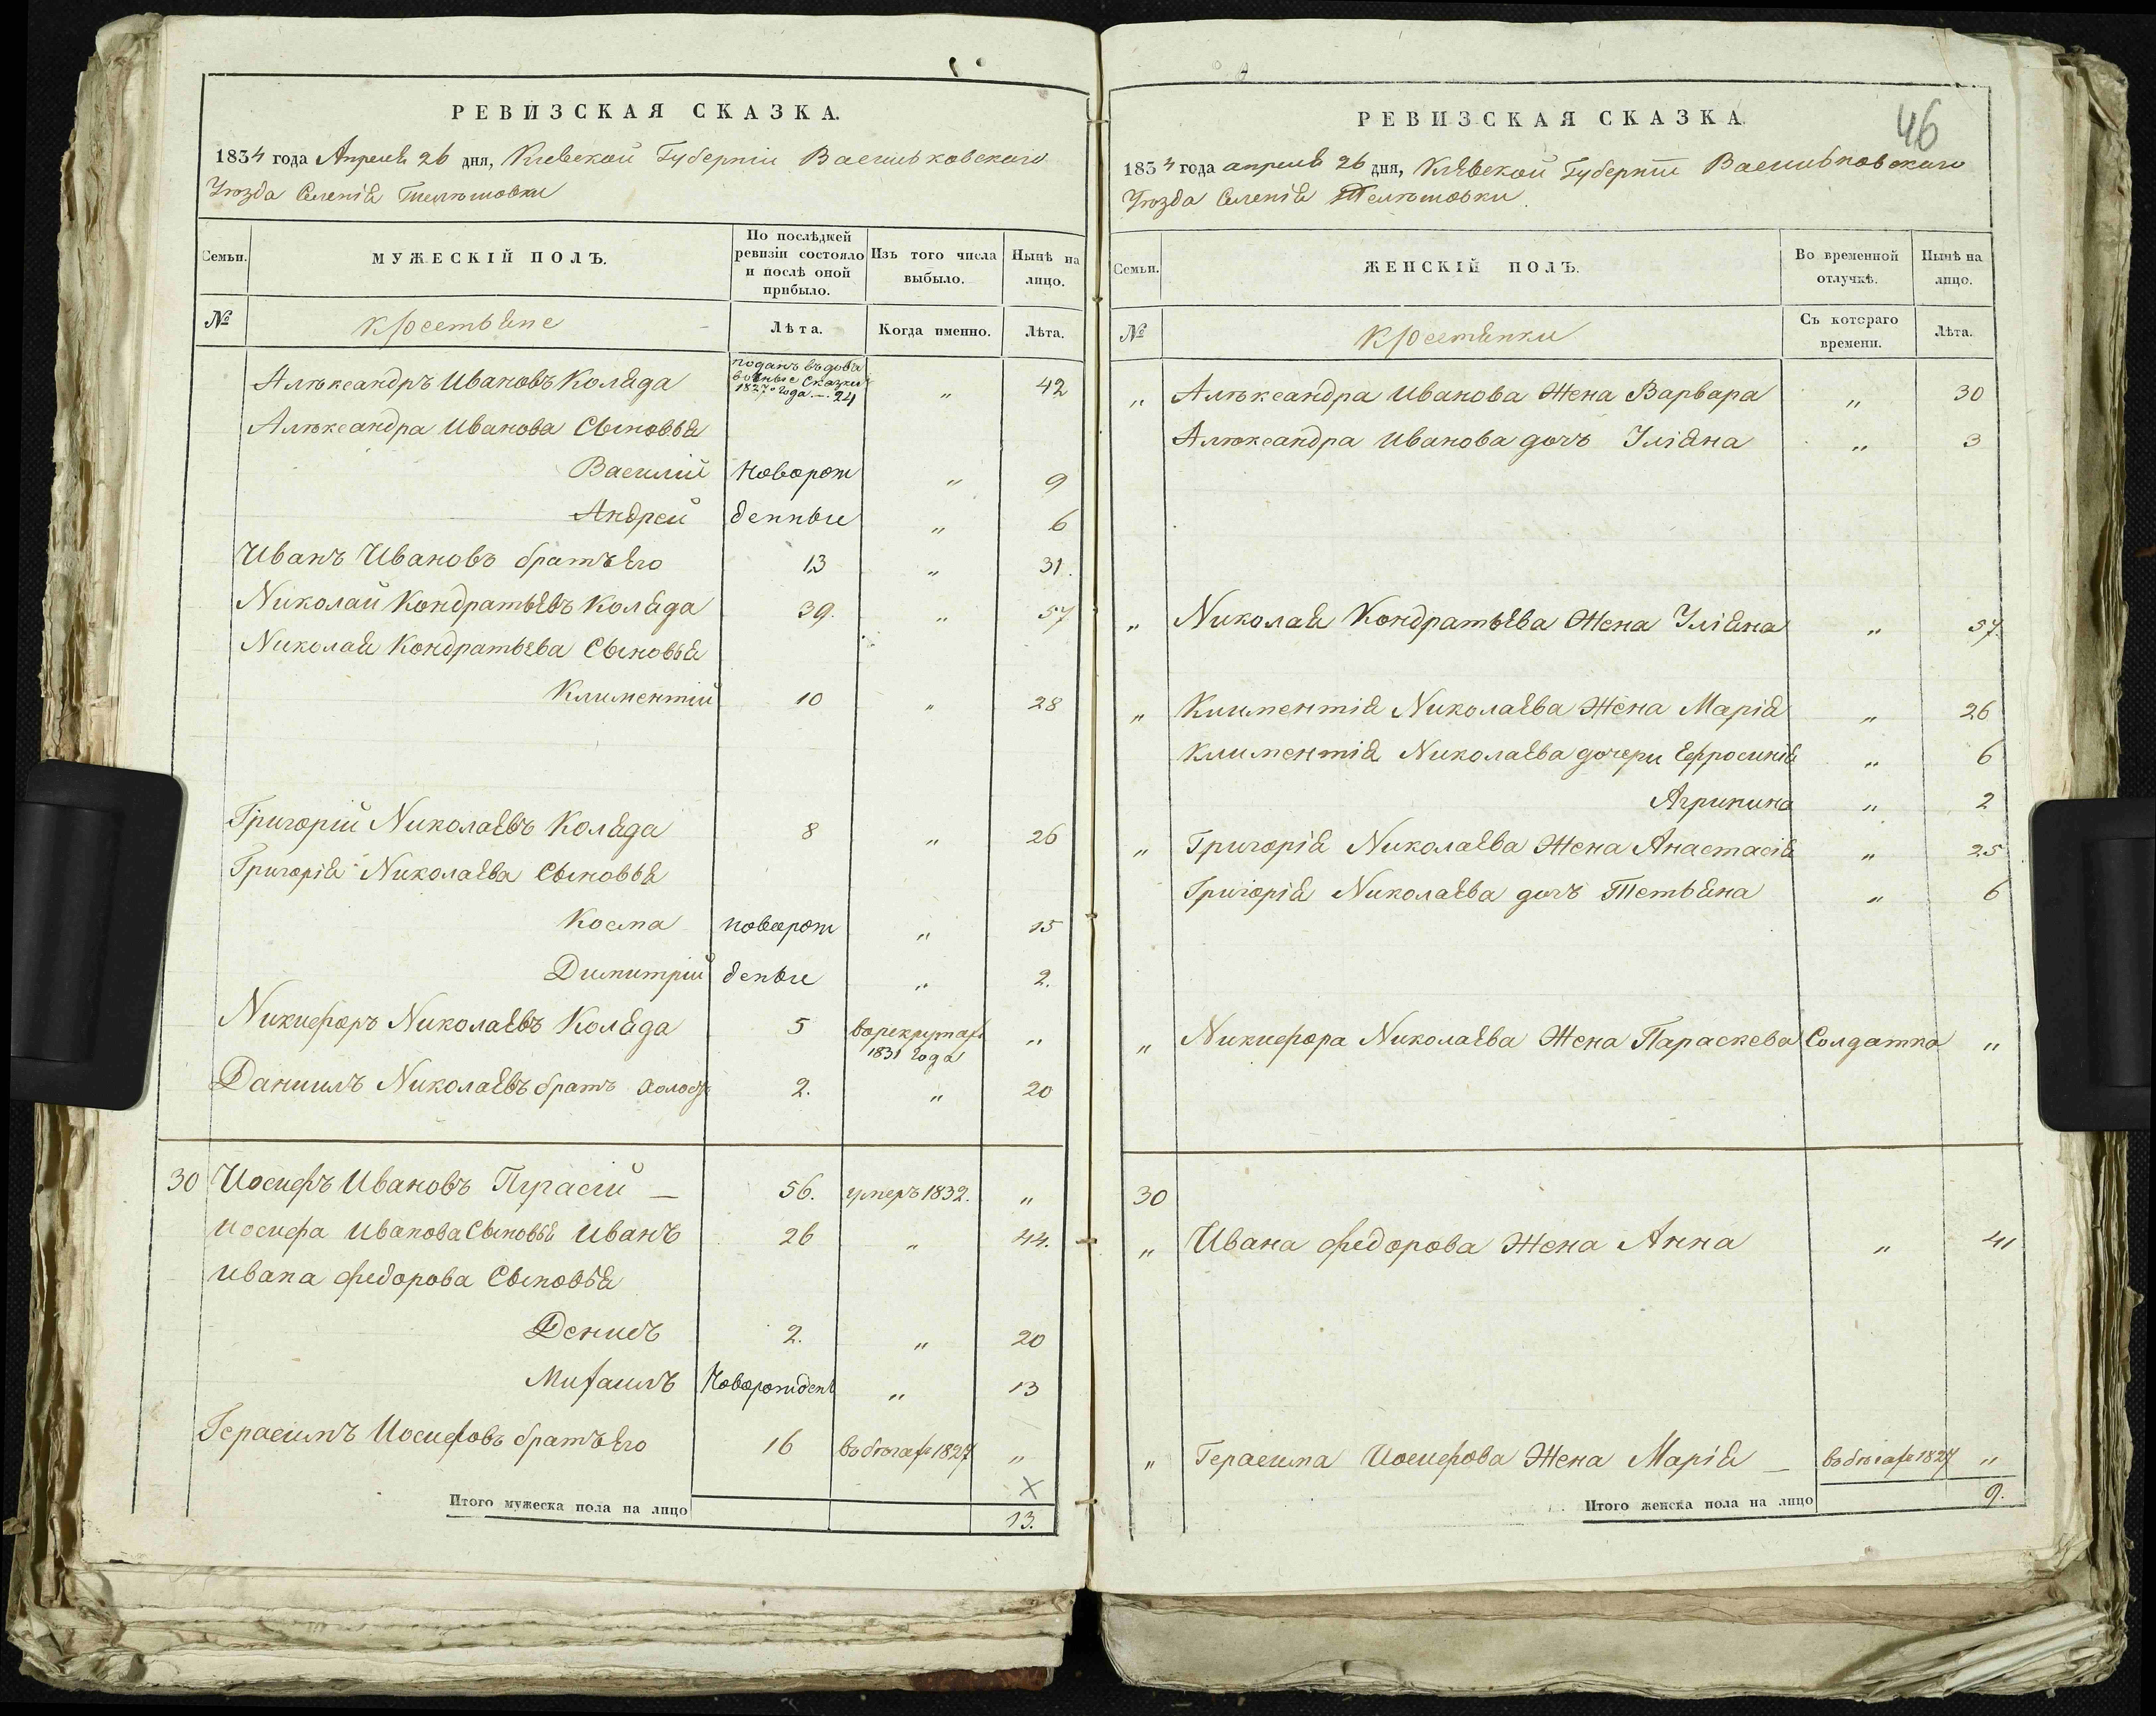 РЕВИЗСКАЯ СКАЗКА.
1834 года Апреля 26 дня, Киевской Губернiи Васильковскаго
Уюзда Селенiя Телюшовки
Семьи. МУЖЕСКIЙ ПОЛЪ. По послѣдней ревизiи состояло и послѣ оной прибыло. Изъ того числа выбыло. Нынѣ на лицо.
№ крестьяне Лѣта. Когда именно. Лѣта.
Алюксандръ Ивановъ Коляда поданъ въ доба вочные Сказки 1827го года.—.24 „ 42
Алюксандра Иванова Сыновья
Василий Новорож „ 9
Андрей денные „ 6
Иванъ Ивановъ братъ Его 13 „ 31.
Николай Кондратьевъ Коляда 39. „ 57
Николая Кондратьева Сыновья
Климентий 10 „ 28
Григорий Николаевъ Коляда 8 „ 26
Григорiя Николаева Сыновья
Косма новорож „ 15
Димитрий деные „ 2.
Никифоръ Николаевъ Коляда 5 ворекрутах 1831 года „
Даниилъ Николаевъ братъ 2. „ 20
30 Иосифъ Ивановъ Пугасий — 56. умеръ 1832. „
Иосифа Иванова Сыновья Иванъ 26 „ 44.
Ивана Федорова Сыновья
Денисъ 2. „ 20
Михаилъ Новорожден „ 13
Герасимъ Иосифовъ братъ Его 16 въ бюгах 1827 „
×
Итого мужеска пола на лицо 13.
46
РЕВИЗСКАЯ СКАЗКА.
1834 года апреля 26 дня, Киевской Губернiи Васильковскаго
Уюзда Селенiя Телюшовки.
Семьи. ЖЕНСКIЙ ПОЛЪ. Во временной отлучкѣ. Нынѣ на лицо.
№ Крестянки Съ котораго времени. Лѣта.
„ Алюксандра Иванова Жена Варвара „ 30
Алюксандра Иванова дочъ Улiяна „ 3
„ Николая Кондратьева Жена Улiяна „ 57.
„ Климентiя Николаева Жена Марiя „ 26
Климентiя Николаева дочери Ефросинiя „ 6
Агрипина „ 2
„ Григорiя Николаева Жена Анастасiя „ 25
Григорiя Николаева дочъ Тетьяна „ 6
„ Никифора Николаева Жена Параскева Солдатка „
30
„ Ивана Федорова Жена Анна „ 41
„ Герасима Иосифова Жена Марiя — въ бюгах 1827 „
Итого женска пола на лицо 9.